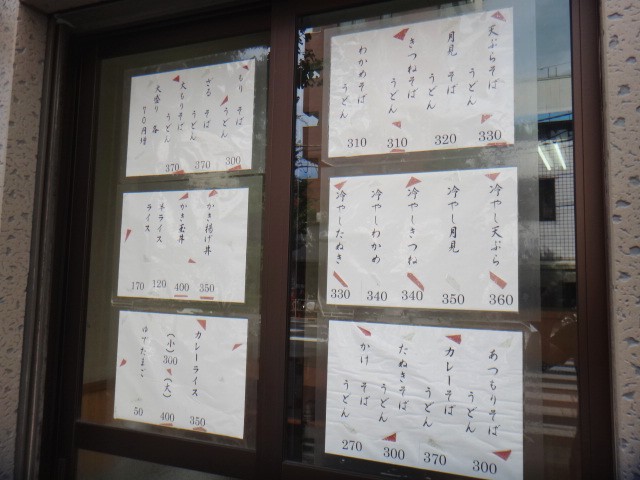 天ぷらそば
うどん
330
月見 そば
うどん
320
きつねそば
うどん
310
わかめそば
うどん
310
冷やし天ぷら
360
冷やし月見
350
冷やしきつね
340
冷やしわかめ
340
冷やしたぬき
330
あつもりそば
うどん
300
カレーそば
うどん
370
たぬきそば
うどん
300
かけ そば
うどん
270
もり そば
うどん
300
ざる そば
うどん
370
大もりそば
うどん
370
大盛り 各
70円増
かき揚げ丼
350
かき玉丼
400
ライス
120
ライス
170
カレーライス
350
(大)
400
(小)
300
ゆでたまご
50